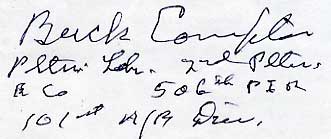 Buck Compton
Pltn. Ldr. 2nd Pltn.
E Co 506th PIR
101st A/B Div.